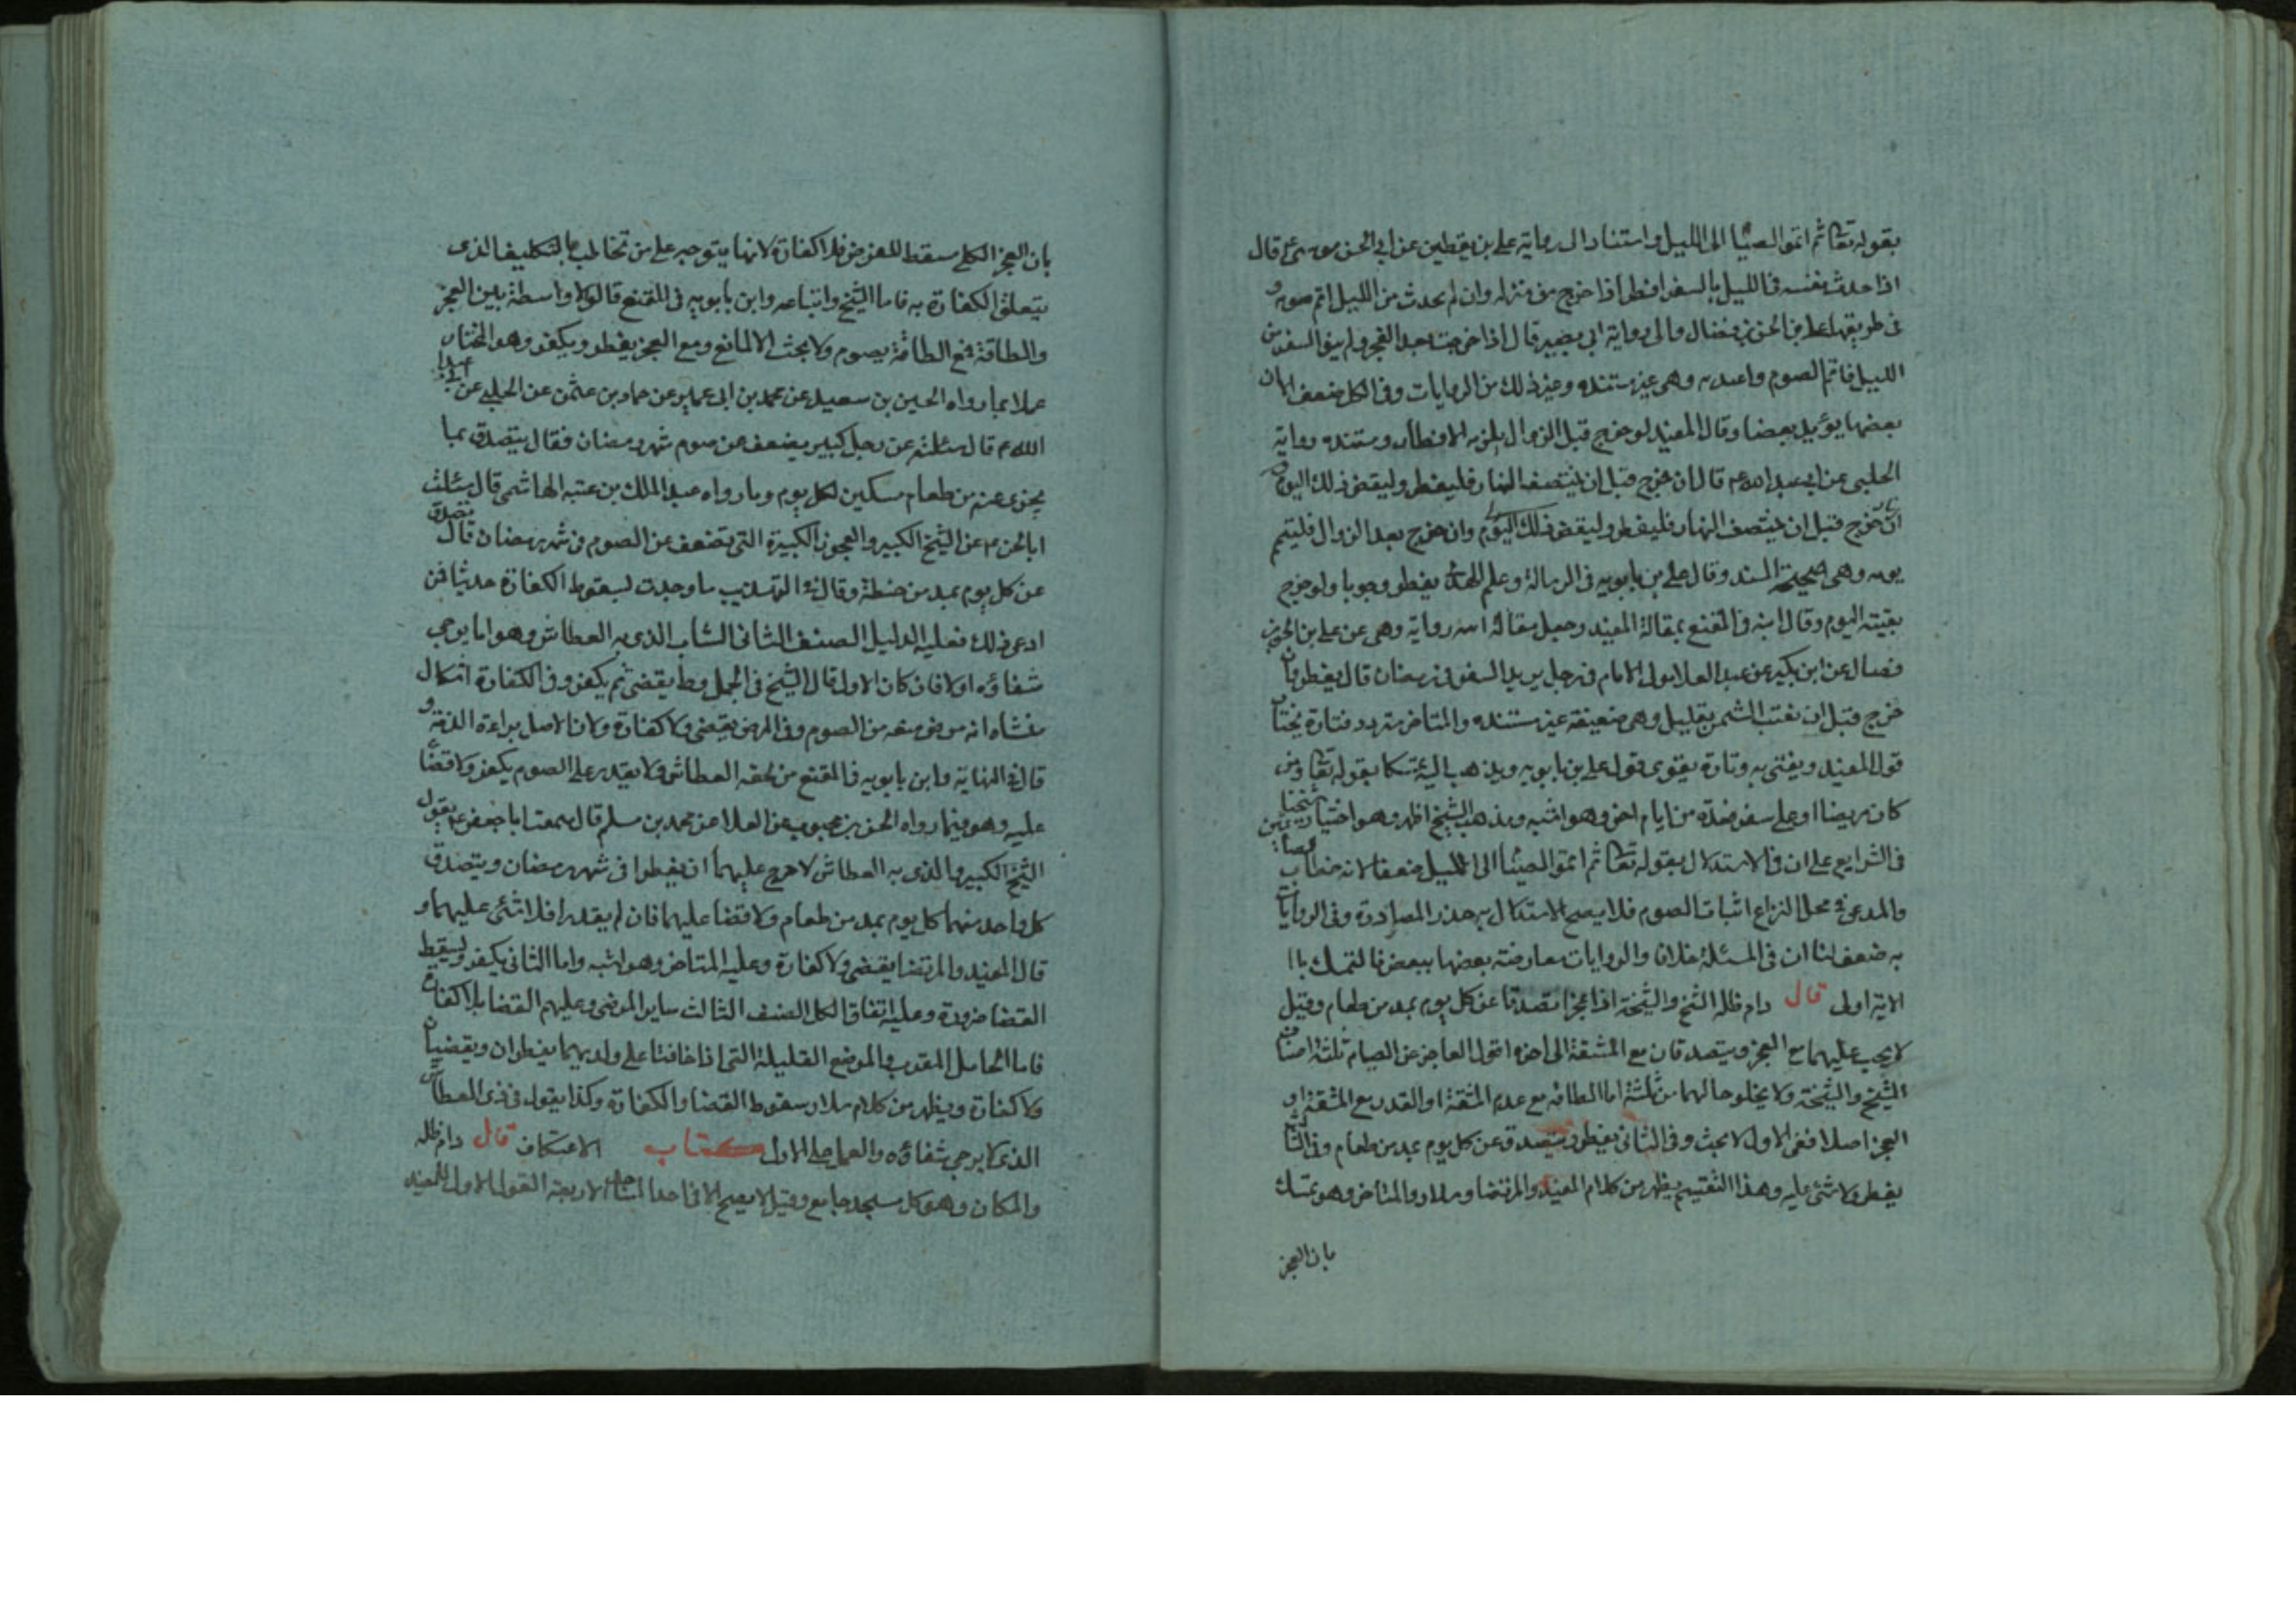 بقوله تعا ثم اتموا الصيا الى الليل واستنادا الى رواية علي بن يقطين عن ابي الحسن موسى ع قال
اذا حدث نفسه في الليل بالسفر افطر اذا خرج من منزله وان لم يحدث من الليل اتم صومه و
في طريقها علي بن الحسن بن فضال والى رواية ابي بصير قال اذا خرجت بعد الفجر ولم ينو السفر من
الليل فاتم الصوم واعتد به وهي غير مستنده وغير ذلك من الروايات وفي الكل ضعف الا ان
بعضها يؤيد بعضا وقال المفيد لو خرج قبل الزوال يلزمه الافطار ومستنده رواية
الحلبي عن ابي عبد الله ع قال ان خرج قبل ان ينتصف النهار فليفطر وليقض ذلك اليوم
ان خرج قبل ان ينتصف النهار فليفطر وليقض ذلك اليوم وان خرج بعد الزوال فليتم
يومه وهي صحيحة السند وقال علي بن بابويه في الرسالة وعلم الهدى يفطر وجوبا ولو خرج
بقيته اليوم وقال ابنه في المقنع بمقالة المفيد وجعل مقالة ابيه رواية وهي عن علي بن الحسن بن
فضال عن ابن بكير عن عبد الاعلا مولى الامام في رجل يريد السفر في رمضان قال يفطر وان
خرج قبل ان تغيب الشمس بقليل وهي ضعيفة غير مستنده والمتاخر متردد فتارة يختار
قول المفيد ويفتي به وتارة يقوى قول علي بن بابويه ويذهب اليه تمسكا بقوله تعا ومن
كان مريضا او على سفر فعدة من ايام اخر وهو اشبه ومذهب الشيخ اظهر وهو اختيار شيخنا
في الشرايع على ان في الاستدلال بقوله تعا ثم اتموا الصيا الى الليل ضعفا لانه خطاب
والمدعى في محل النزاع اثبات الصوم فلا يصح الاستدلال به حذر المصادرة وفي الروايات
به ضعف لنا ان في المسئلة خلافا والروايات معارضة بعضها ببعض فالتمسك با
الاية اولى قال دام ظله الشيخ والشيخة اذا عجزا تصدقا عن كل يوم بمد من طعام وقيل
لا يجب عليهما مع العجز ويتصدقان مع المشقة الى اخره اقول العاجز عن الصيام ثلثة اصناف
الشيخ والشيخة ولا يخلو حالهما من ثلثة اما الطاقة مع عدم المشقة او القدرة مع المشقة او
العجز اصلا ففي الاول لا بحث وفي الثاني يفطر ويتصدق عن كل يوم بمد من طعام وفي الثالث
يفطر ولا شئ عليه وهذا التقسيم يظهر من كلام المفيد والمرتضا وسلار والمتاخر وهو تمسك
بان العجز
بان العجز الكلي مسقط للفرض فلا كفارة لانها يتوجه على من تخاطب بالتكليف الذي
يتعلق الكفارة به فاما الشيخ واتباعه وابن بابويه في المقنع قالوا لا واسطة بين العجز
والطاقة فمع الطاقة يصوم ولا بحث الا لمانع ومع العجز يفطر ويكفر وهو المختار
عملا بما رواه الحسين بن سعيد عن محمد بن ابي عمير عن حماد بن عثمن عن الحلبي عن ابي عبد
الله ع قال سئلته عن رجل كبير يضعف عن صوم شهر رمضان فقال يتصدق بما
يجزى عنه من طعام مسكين لكل يوم وما رواه عبد الملك بن عتبه الهاشمي قال سئلت
ابا الحسن ع عن الشيخ الكبير والعجوز الكبيرة التي تضعف عن الصوم في شهر رمضان قال تصدق
عن كل يوم بمد من حنطة وقال في التهذيب ما وجدت لسقوط الكفارة حديثا فمن
ادعى ذلك فعليه الدليل الصنف الثاني الشاب الذي به العطاش وهو اما يرجى
شفاؤه او لا فان كان الاول قال الشيخ في الجمل و ط يقضى ثم يكفر وفي الكفارة اشكال
منشاه انه مرض منعه من الصوم وفي المرض يقضى ولا كفارة ولان الاصل براءة الذمة و
قال في النهاية وابن بابويه في المقنع من لحقه العطاش ولا يقدر على الصوم يكفر ولا قضاء
عليه وهو فيما رواه الحسن بن محبوب عن العلا عن محمد بن مسلم قال سمعت ابا جعفر ع يقول
الشيخ الكبير والذي به العطاش لا حرج عليهما ان يفطرا في شهر رمضان ويتصدق
كل واحد منهما كل يوم بمد من طعام ولا قضا عليهما فان لم يقدرا فلا شئ عليهما و
قال المفيد والمرتضا يقضى ولا كفارة وعليه المتاخر وهو اشبه واما الثاني يكفر ويسقط
القضا ضرورة وعليه اتفاق الكل الصنف الثالث ساير المرضى وعليهم القضا بلا كفارة
فاما الحامل المقرب والمرضع القليلة التي اذا خافتا على ولديهما يفطران ويقضيان
ولا كفارة ويظهر من كلام سلار سقوط القضا والكفارة وكذا يقول في ذي العطاش
الذي لا يرجى شفاؤه والعمل على الاول كتاب الاعتكاف قال دام ظله
والمكان وهو كل مسجد جامع وقيل لا يصح الا في احد المساجد الاربعة القول الاول للمفيد